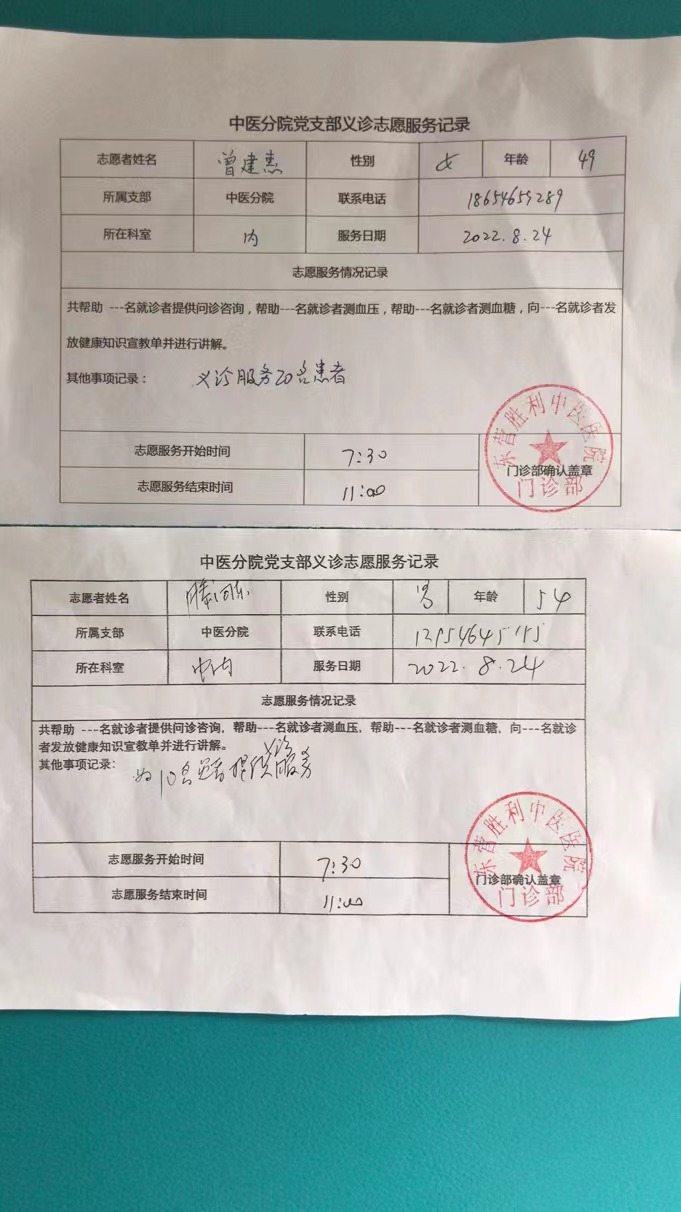 中医分院党支部义诊志愿服务记录
志愿者姓名 曾建惠 性别 女 年龄 49
所属支部 中医分院 联系电话 18654659289
所在科室 内 服务日期 2022.8.24
志愿服务情况记录
共帮助 ---名就诊者提供问诊咨询，帮助---名就诊者测血压，帮助---名就诊者测血糖，向---名就诊者发
放健康知识宣教单并进行讲解。
其他事项记录： 义诊服务20名患者
志愿服务开始时间 7:30
志愿服务结束时间 11:00
门诊部确认盖章
东营胜利中医医院
门诊部
中医分院党支部义诊志愿服务记录
志愿者姓名 性别 男 年龄 54
所属支部 中医分院 联系电话
所在科室 中内 服务日期 2022.8.24
志愿服务情况记录
共帮助 ---名就诊者提供问诊咨询，帮助---名就诊者测血压，帮助---名就诊者测血糖，向---名就诊
者发放健康知识宣教单并进行讲解。
其他事项记录： 为10名患者提供义诊服务
志愿服务开始时间 7:30
志愿服务结束时间 11:00
门诊部确认盖章
东营胜利中医医院
门诊部